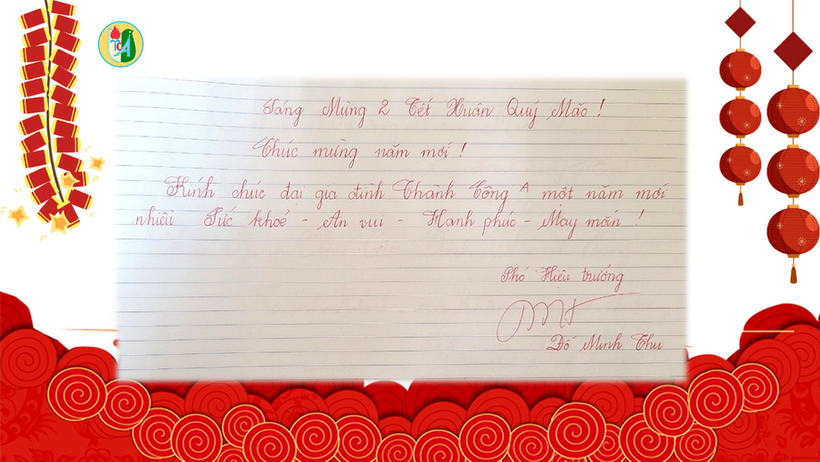 TCA
Sáng Mùng 2 Tết Xuân Quý Mão !
Chúc mừng năm mới !
Kính chúc đại gia đình Thành Công A một năm mới
nhiều Sức khoẻ - An vui - Hạnh phúc - May mắn !
Phó Hiệu trưởng
Đỗ Minh Thu